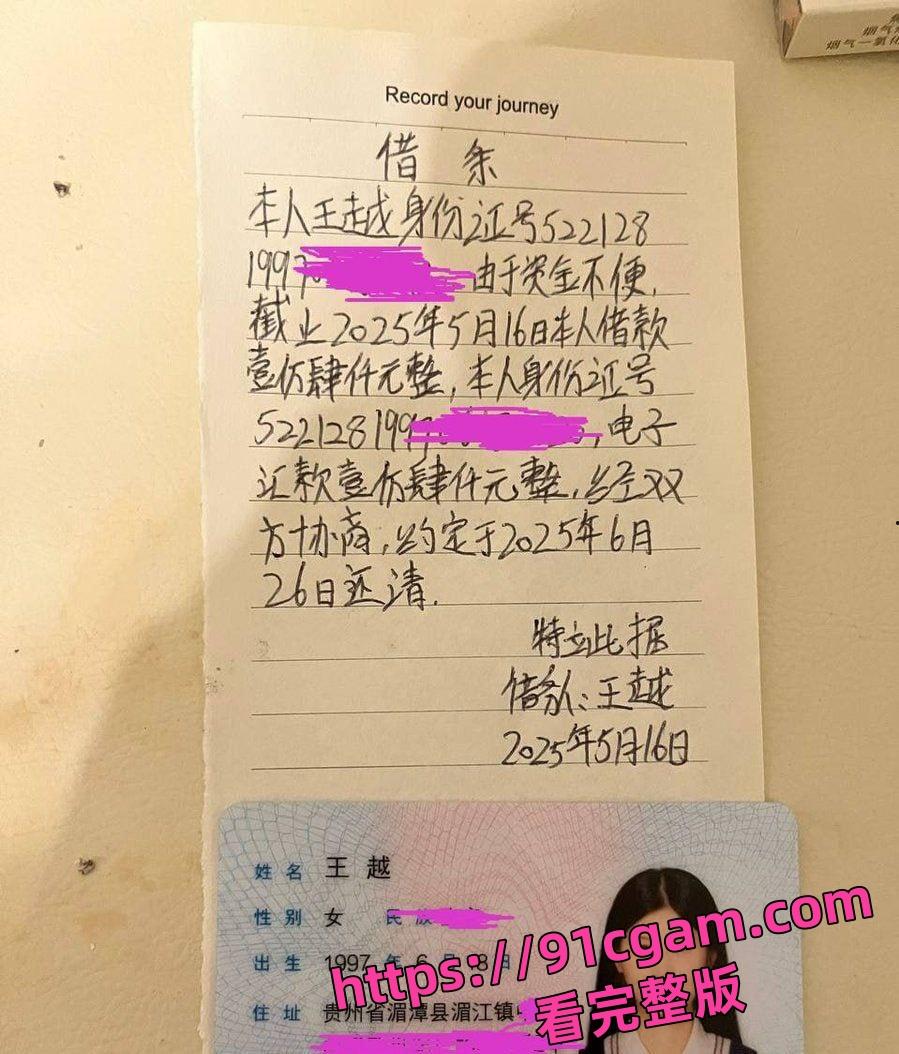 烟气
烟气一氧化
Record your journey
借 条
本人王越身份证号522128
199 由于资金不便,
截止2025年5月16日本人借款
壹仟肆仟元整,本人身份证号
522128199 ,电子
汇款壹仟肆仟元整,经双
方协商,约定于2025年6月
26日还清.
特立此据
借条人:王越
2025年5月16日
姓名 王越
性别 女 民族
出生 1997 年 6 月 18 日
住址 贵州省湄潭县湄江镇
https://91cgam.com
看完整版